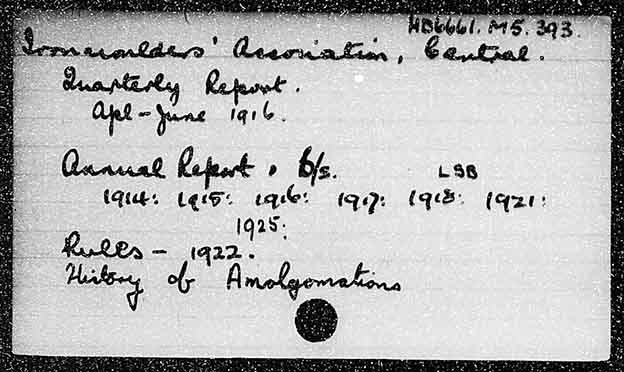 HD6661.M5.393.
Ironmoulders' Association, Central.
Quarterly Report.
Apl-June 1916.
Annual Report. b/s. LSB
1914: 1915: 1916: 1917: 1918: 1921:
1925:
Rules - 1922.
History of Amalgomations